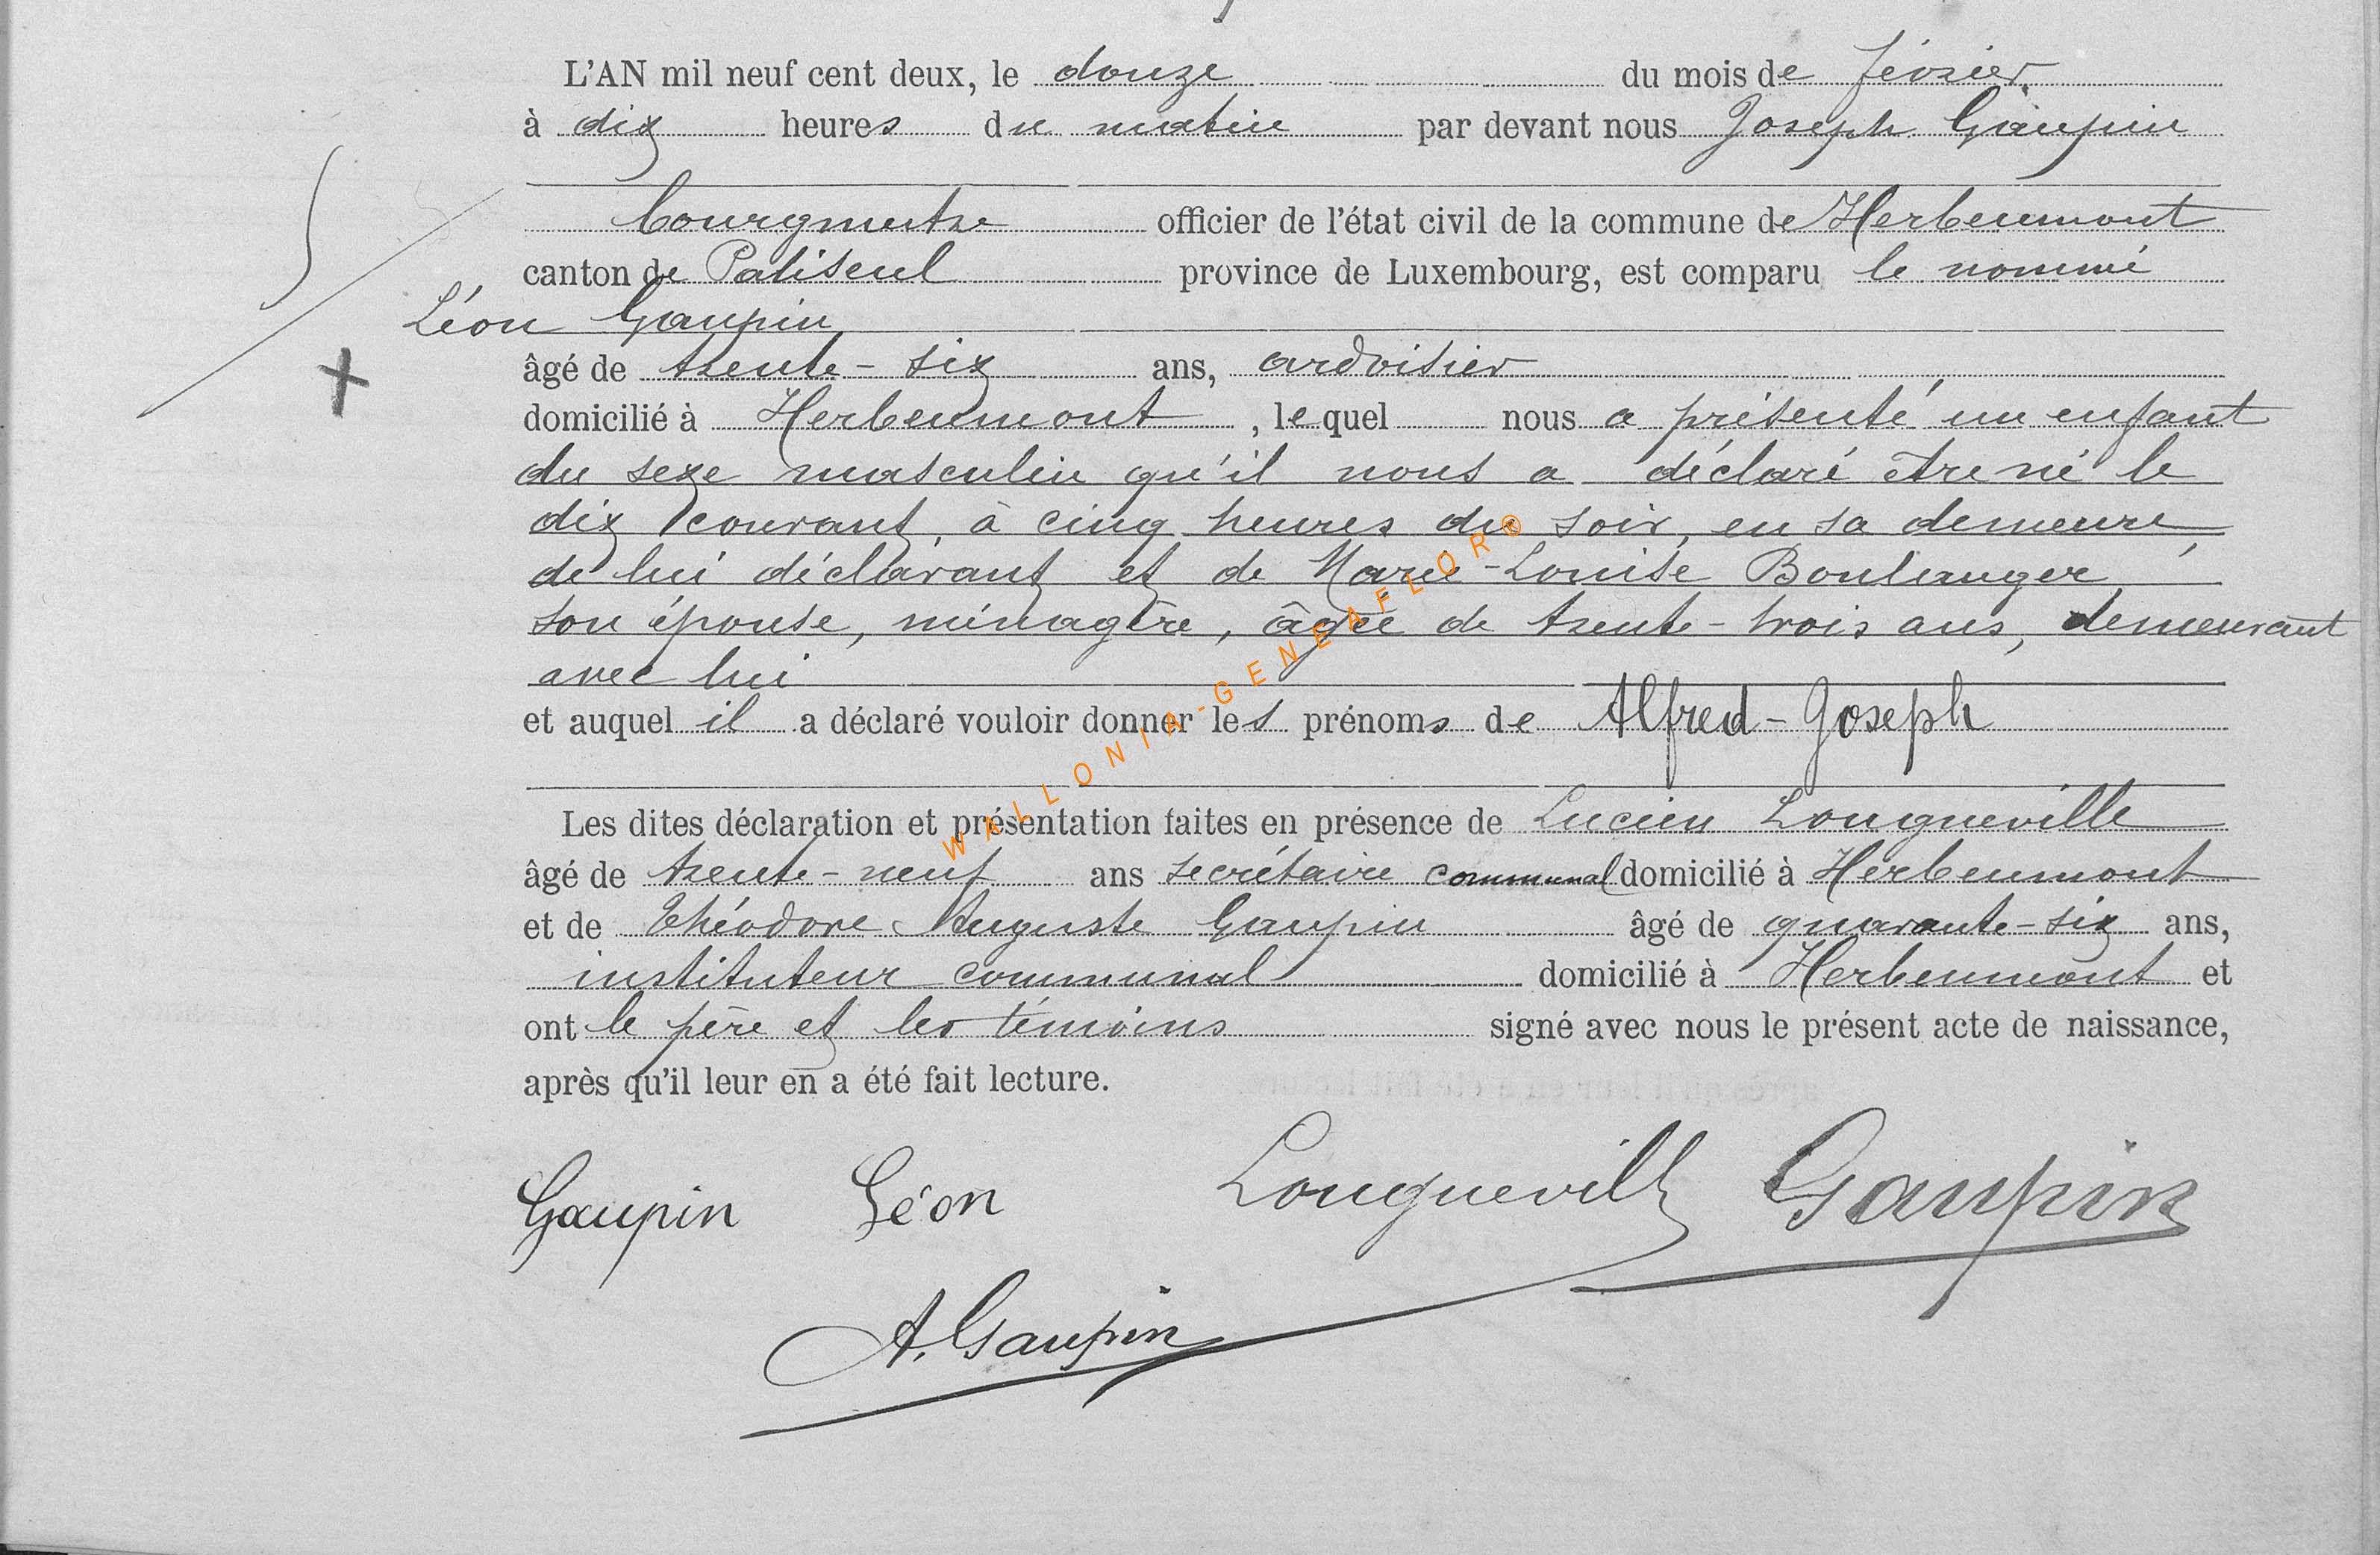 L'AN mil neuf cent deux, le douze du mois de février
à dix heures du matin par devant nous Joseph Gaupin
bourgmestre officier de l'état civil de la commune de Herbeumont
canton de Paliseul province de Luxembourg, est comparu le nommé
Léon Gaupin
âgé de trente-six ans, ardoisier
domicilié à Herbeumont, lequel nous a présenté un enfant
du sexe masculin qu'il nous a déclaré être né le
dix courant, à cinq heures du soir, en sa demeure,
de lui déclarant et de Marie-Louise Boulanger,
son épouse, ménagère, âgée de trente-trois ans, demeurant
avec lui
et auquel il a déclaré vouloir donner les prénoms de Alfred-Joseph
Les dites déclaration et présentation faites en présence de Lucien Longueville
âgé de trente-neuf ans secrétaire communal domicilié à Herbeumont
et de Théodore Auguste Gaupin âgé de quarante-six ans,
instituteur communal domicilié à Herbeumont et
ont le père et les témoins signé avec nous le présent acte de naissance,
après qu'il leur en a été fait lecture.
Gaupin Léon Longueville Gaupin
A. Gaupin
WALLONIA-GENEAFLOR®